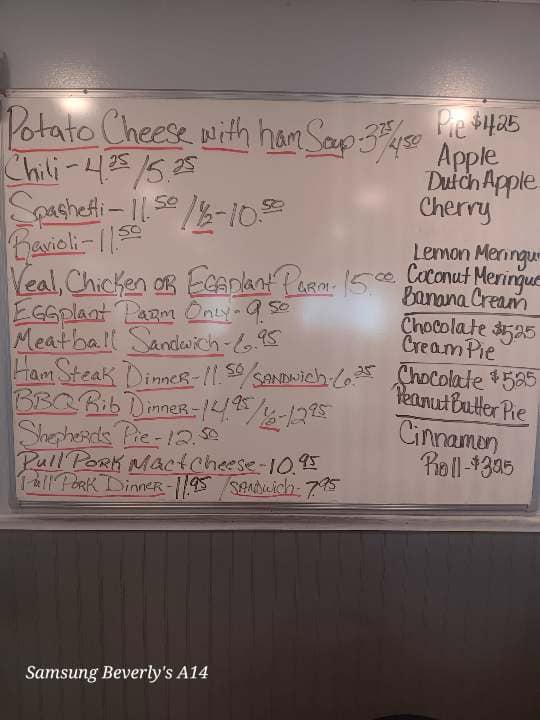 Potato Cheese with ham Soup - 3.75/4.50
Chili - 4.25 / 5.25
Spaghetti - 11.50 / ½ - 10.50
Ravioli - 11.50
Veal, Chicken OR Eggplant Parm - 15.00
Eggplant Parm Only - 9.50
Meatball Sandwich - 6.95
Ham Steak Dinner - 11.50 / SANDWICH - 6.25
BBQ Rib Dinner - 14.95 / ½ - 12.95
Shepherds Pie - 12.50
Pull Pork Mac + Cheese - 10.95
Pull Pork Dinner - 11.95 / SANDWICH - 7.95
Pie $4.25
Apple
Dutch Apple
Cherry
Lemon Meringue
Coconut Meringue
Banana Cream
Chocolate $5.25
Cream Pie
Chocolate $5.25
Peanut Butter Pie
Cinnamon
Roll - $3.25
Samsung Beverly's A14